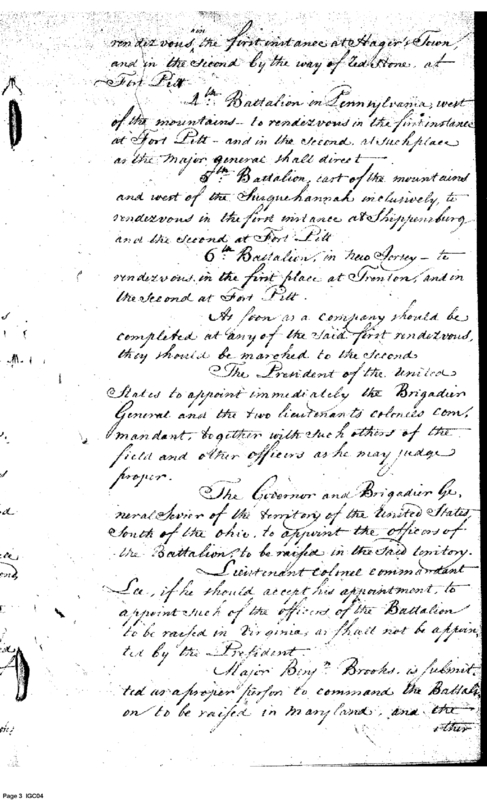 in
rendezvous, the first instance at Hager's Town,
and in the second by the way of Red stone, at
Fort Pitt
4th. Battalion in Pennsylvania, west
of the mountains - to rendezvous in the first instance
at Fort Pitt - and in the second, at such place
as the major general shall direct
5th Battalion, east of the mountains
and west of the Susquehannah inclusively, to
rendezvous in the first instance at Shippensburg
and the second at Fort Pitt
6th Battalion, in New Jersey - to
rendezvous, in the first place at Trenton, and in
the second at Fort Pitt.
As soon as a company should be
completed at any of the said first rendezvous,
they should be marched to the second
The President of the United
States to appoint immediately the Brigadier
General and the two lieutenants colonels com,
mandant, together with such others of the
field and other officers as he may judge
proper.
The Governor and Brigadier Ge,
neral Sevier of the territory of the United States,
South of the Ohio, to appoint the officers of
the Battalion, to be raised in the said territory.
Lieutenant Colonel commandant
Lee, if he should accept his appointment, to
appoint such of the officers of the Battalion
to be raised in Virginia, as shall not be appoin,
ted by the President
Major Benjn. Brooks, is submit,
ted as a proper person to command the Battali,
on to be raised in Maryland, and the
other
Page 3 IGC04